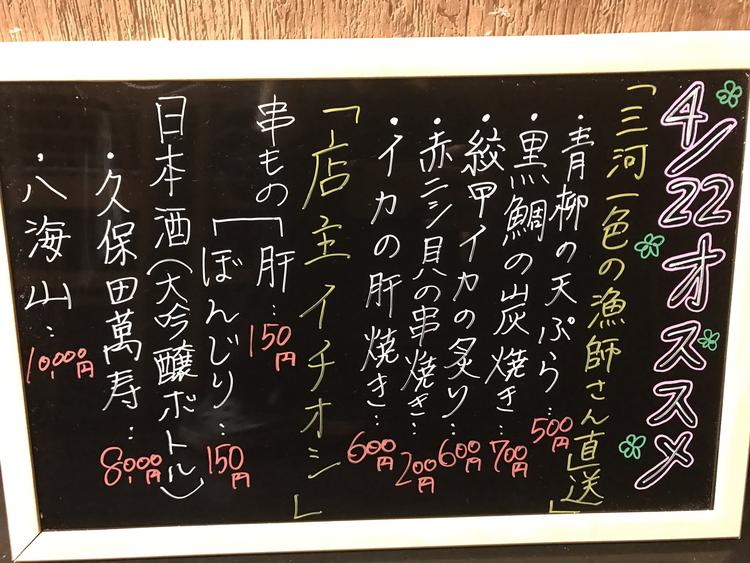 4/22オススメ
「三河一色の漁師さん直送」
・青柳の天ぷら…500円
・黒鯛の炭焼き…700円
・紋甲イカの炙り…600円
・赤ニシ貝の串焼き…200円
・イカの肝焼き…600円
「店主イチオシ」
串もの
肝…150円
ぼんじり…150円
日本酒(大吟醸ボトル)
・久保田萬寿…8,000円
・八海山…10,000円